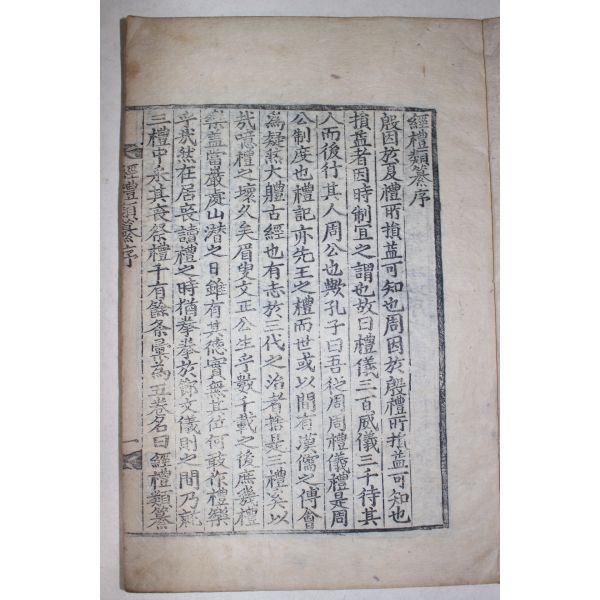 經禮類纂序
殷因於夏禮所損益可知也周因於殷禮所損益可知也
損益者因時制宜之謂也故曰禮儀三百威儀三千待其
人而後行其人周公也歟孔子曰吾從周周禮儀禮是周
公制度也禮記亦先王之禮而世或以間有漢儒之傅會
為疑然大軆古經也有志於三代之治者捨是三禮奚以
哉噫禮之壞久矣眉叟文正公生乎數千載之後庶幾禮
樂盖當嚴處山潛之日雖有其德實無其位何敢作禮樂
乎哉然在居喪讀禮之時猶拳拳於節文儀則之間乃就
三禮中求其喪祭禮千有餘条彙為五卷名曰經禮類纂
經禮類纂序
一